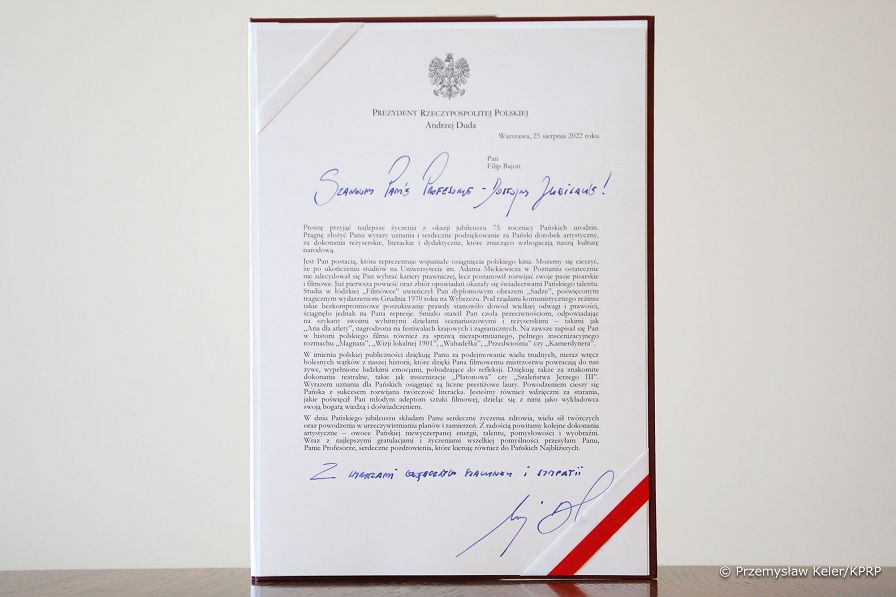 PREZYDENT RZECZYPOSPOLITEJ POLSKIEJ
Andrzej Duda
Warszawa, 25 sierpnia 2022 roku
Pan
Filip Bajon
Szanowny Panie Profesorze – Dostojny Jubilacie!
Proszę przyjąć najlepsze życzenia z okazji jubileuszu 75. rocznicy Pańskich urodzin.
Pragnę złożyć Panu wyrazy uznania i serdeczne podziękowanie za Pański dorobek artystyczny,
za dokonania reżyserskie, literackie i dydaktyczne, które znacząco wzbogacają naszą kulturę
narodową.
Jest Pan postacią, która reprezentuje wspaniałe osiągnięcia polskiego kina. Możemy się cieszyć,
że po ukończeniu studiów na Uniwersytecie im. Adama Mickiewicza w Poznaniu ostatecznie
nie zdecydował się Pan wybrać kariery prawniczej, lecz postanowił rozwijać swoje pasje pisarskie
i filmowe. Już pierwsza powieść oraz zbiór opowiadań okazały się świadectwami Pańskiego talentu.
Studia w łódzkiej „Filmówce” uwieńczył Pan dyplomowym obrazem „Sadze”, poświęconym
tragicznym wydarzeniom Grudnia 1970 roku na Wybrzeżu. Pod rządami komunistycznego reżimu
takie bezkompromisowe poszukiwanie prawdy stanowiło dowód wielkiej odwagi i prawości,
ściągnęło jednak na Pana represje. Śmiało stawił Pan czoła przeciwnościom, odpowiadając
na szykany swoimi wybitnymi dziełami scenariuszowymi i reżyserskimi – takimi jak
„Aria dla atlety”, nagrodzona na festiwalach krajowych i zagranicznych. Na zawsze zapisał się Pan
w historii polskiego filmu również za sprawą niezapomnianego, pełnego inscenizacyjnego
rozmachu „Magnata”, „Wizji lokalnej 1901”, „Wahadełka”, „Przedwiośnia” czy „Kamerdynera”.
W imieniu polskiej publiczności dziękuję Panu za podejmowanie wielu trudnych, nieraz wręcz
bolesnych wątków z naszej historii, które dzięki Pana filmowemu mistrzostwu powracają do nas
żywe, wypełnione ludzkimi emocjami, pobudzające do refleksji. Dziękuję także za znakomite
dokonania teatralne, takie jak inscenizacje „Płatonowa” czy „Szaleństwa Jerzego III”.
Wyrazem uznania dla Pańskich osiągnięć są liczne prestiżowe laury. Powodzeniem cieszy się
Pańska z sukcesem rozwijana twórczość literacka. Jesteśmy również wdzięczni za starania,
jakie poświęcił Pan młodym adeptom sztuki filmowej, dzieląc się z nimi jako wykładowca
swoją bogatą wiedzą i doświadczeniem.
W dniu Pańskiego jubileuszu składam Panu serdeczne życzenia zdrowia, wielu sił twórczych
oraz powodzenia w urzeczywistnianiu planów i zamierzeń. Z radością powitamy kolejne dokonania
artystyczne – owoce Pańskiej niewyczerpanej energii, talentu, pomysłowości i wyobraźni.
Wraz z najlepszymi gratulacjami i życzeniami wszelkiej pomyślności przesyłam Panu,
Panie Profesorze, serdeczne pozdrowienia, które kieruję również do Pańskich Najbliższych.
Z wyrazami głębokiego szacunku i sympatii
© Przemysław Keler/KPRP